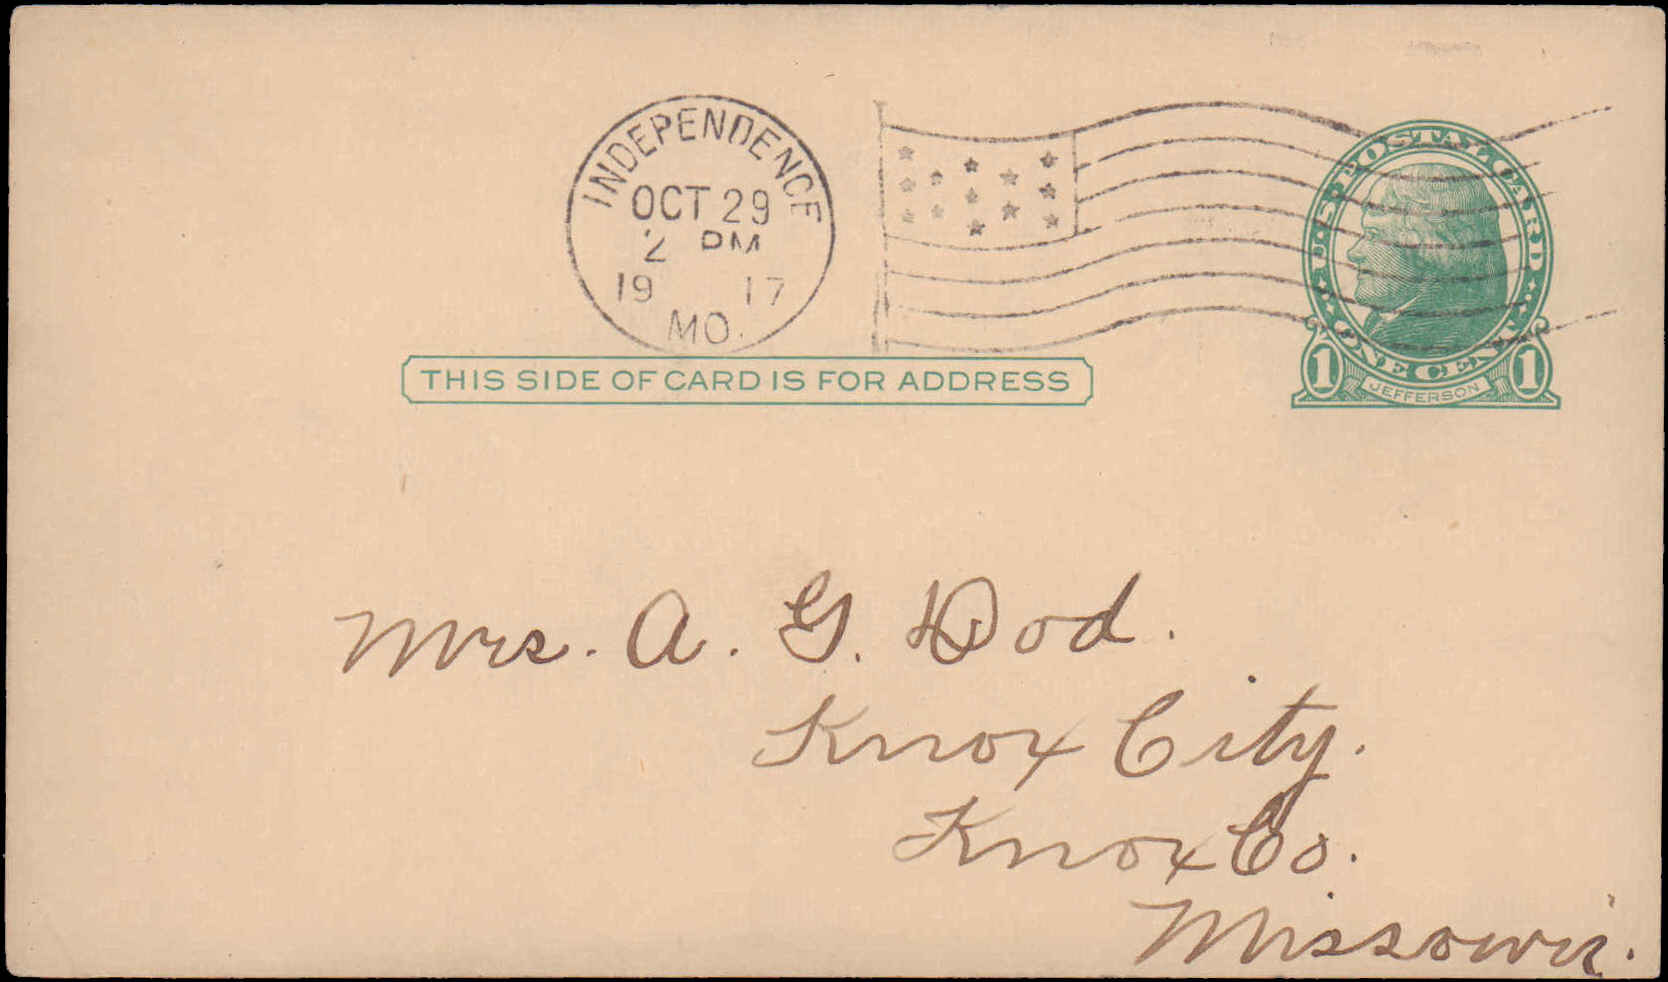 INDEPENDENCE
OCT 29
2 PM
19 17
MO.
U·S·POSTAL CARD
ONE CENT
1 JEFFERSON 1
THIS SIDE OF CARD IS FOR ADDRESS
Mrs. A. G. Dod.
Knox City.
Knox Co.
Missouri.